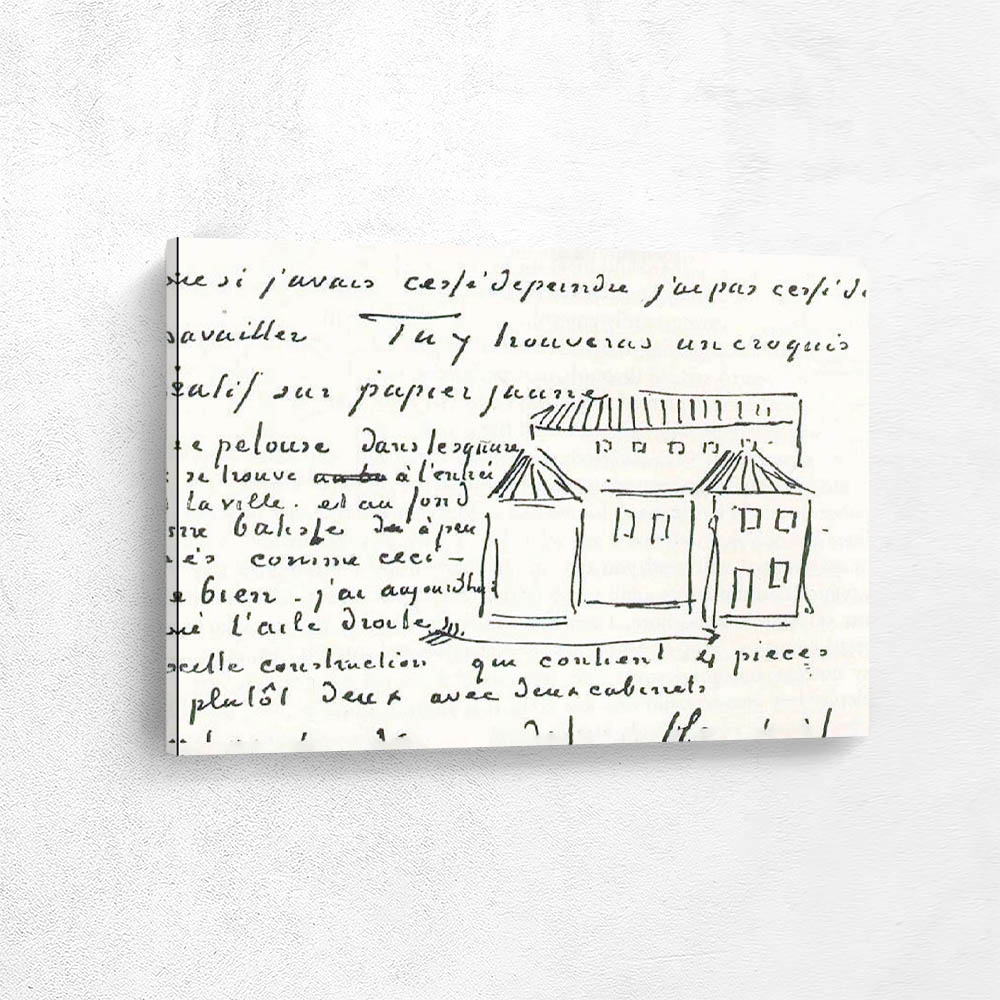 si j'avais cessé de peindre j'ai pas cessé de
Tu y trouveras un croquis
sur papier jaune
pelouse dans le square
se trouve à l'entrée
la ville. et au fond
batisse à peu
comme ceci –
bien - j'ai aujourd'hui
l'aile droite
construction qui contient 4 pieces
plutôt deux avec deux cabinets